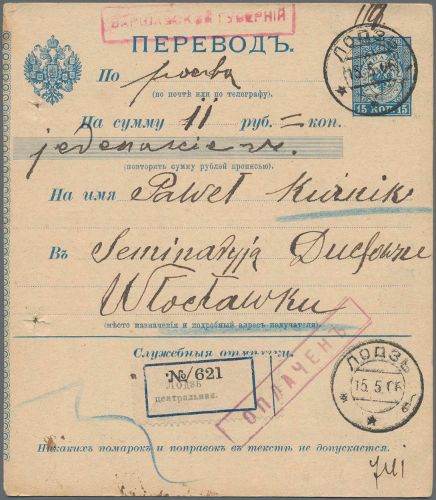 ВАРШАВСКОЙ ГУБЕРНІЙ
ПЕРЕВОДЪ.
ЛОДЗЬ
15.5.06
15 КОП. 15
По
(по почтѣ или по телеграфу).
На сумму 11 руб. = коп.
(повторить сумму рублей прописью).
На имя Paweł Kuźnik
Въ Seminaryja Duchowne
Włocławku
(мѣсто назначенія и подробный адресъ получателя).
Служебныя отмѣтки.
ОПЛАЧЕНЪ
№/621
Лодзь
центральная.
ЛОДЗЬ
15.5.06
Никакихъ помарокъ и поправокъ въ текстѣ не допускается.